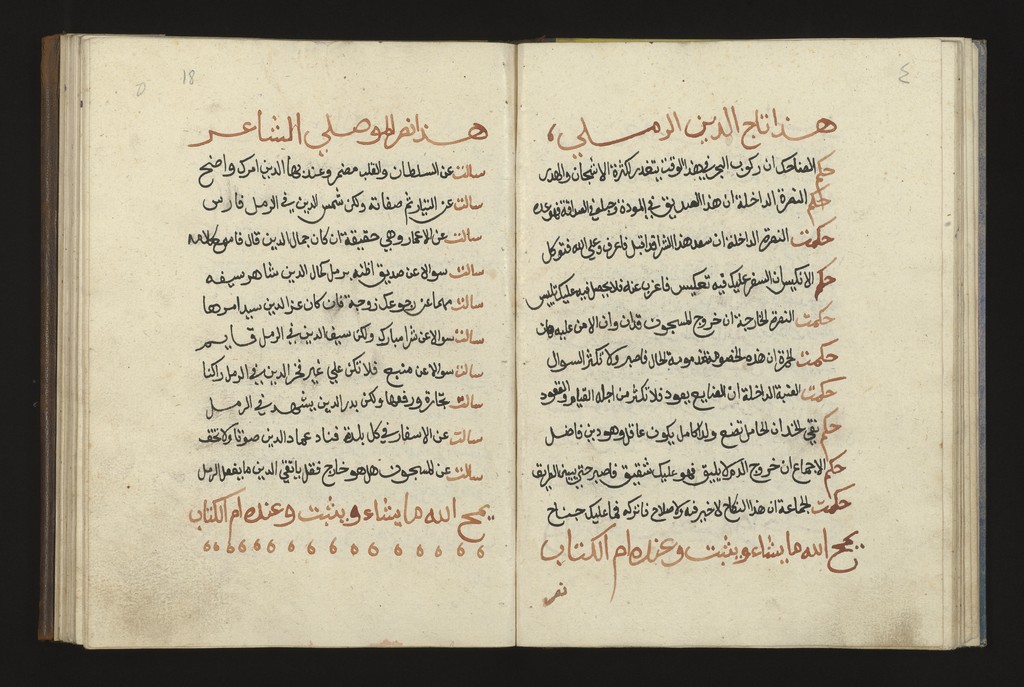 ٤
هذا تاج الدين الرملي
حكم الضاحك ان ركوب البحر في هذا الوقت يتغدر لكثرة الاشجان والهدر
حكم النصرة الداخلة ان هذا الصديق في المودة وجملة الصداقة
حكمت النصرة الداخلة ان سعد هذا الشراقد اقبل فاعرف وعلى الله فتوكل
حكم الانكيس ان السفر عليك فيه تعكيس فاعزب عنه فلا يحصل فيه عليك تلبيس
حكمت النصرة الخارجة ان خروج المسجون قدان وان الامن عليه
حكمت الحمرة ان هذه الخصومة مدمومة الحال فاصبر ولا تكثر السوال
حكمت العتبة الداخلة ان الضايع يعود فلا تكثر من اجله القيام والقعود
حكم نقي الخد ان الحامل تضع ولدا كامل يكون عاقل وهو دين فاضل
حكم الاجتماع ان خروج الدم لا يليق فهو عليك شقيق فاصبر حتى يبين الطريق
حكمت الجماعة ان هذا النكاح لا خير فيه ولا صلاح فاتركه فما عليك جناح
يمح الله ما يشاء ويثبت وعنده ام الكتاب
نصر
18
٥
هذا نصر الموصلي الشاعر
سالت عن السلطان والقلب مضمر وعند بها الدين امرك واضح
سالت عن التيار ثم صفاته ولكن شمس الدين في الرمل فارس
سالت عن الاعمار وهي حقيقة فان كان جمال الدين قال فاسمع كلامه
سالت سوالا عن صديق اظنه برمل كمال الدين شاهر سيفه
سالت مهما عن رجوعك زوجة فان كان عز الدين سيد امرها
سالت سوالا عن شرا مباركه ولكن سيف الدين في الرمل قايم
سالت سوالا عن فلا تكن على غير فخر الدين في الرمل راكنا
سالت تجارة ورفعها ولكن بدر الدين يشهد في الرمل
سالت عن الاسفار في كل بلدة فناد عماد الدين صوتا ولا تخف
سالت عن المسجون هل هو خارج فقل يا تقي الدين ما يفعل الرمل
يمح الله ما يشاء ويثبت وعنده ام الكتاب